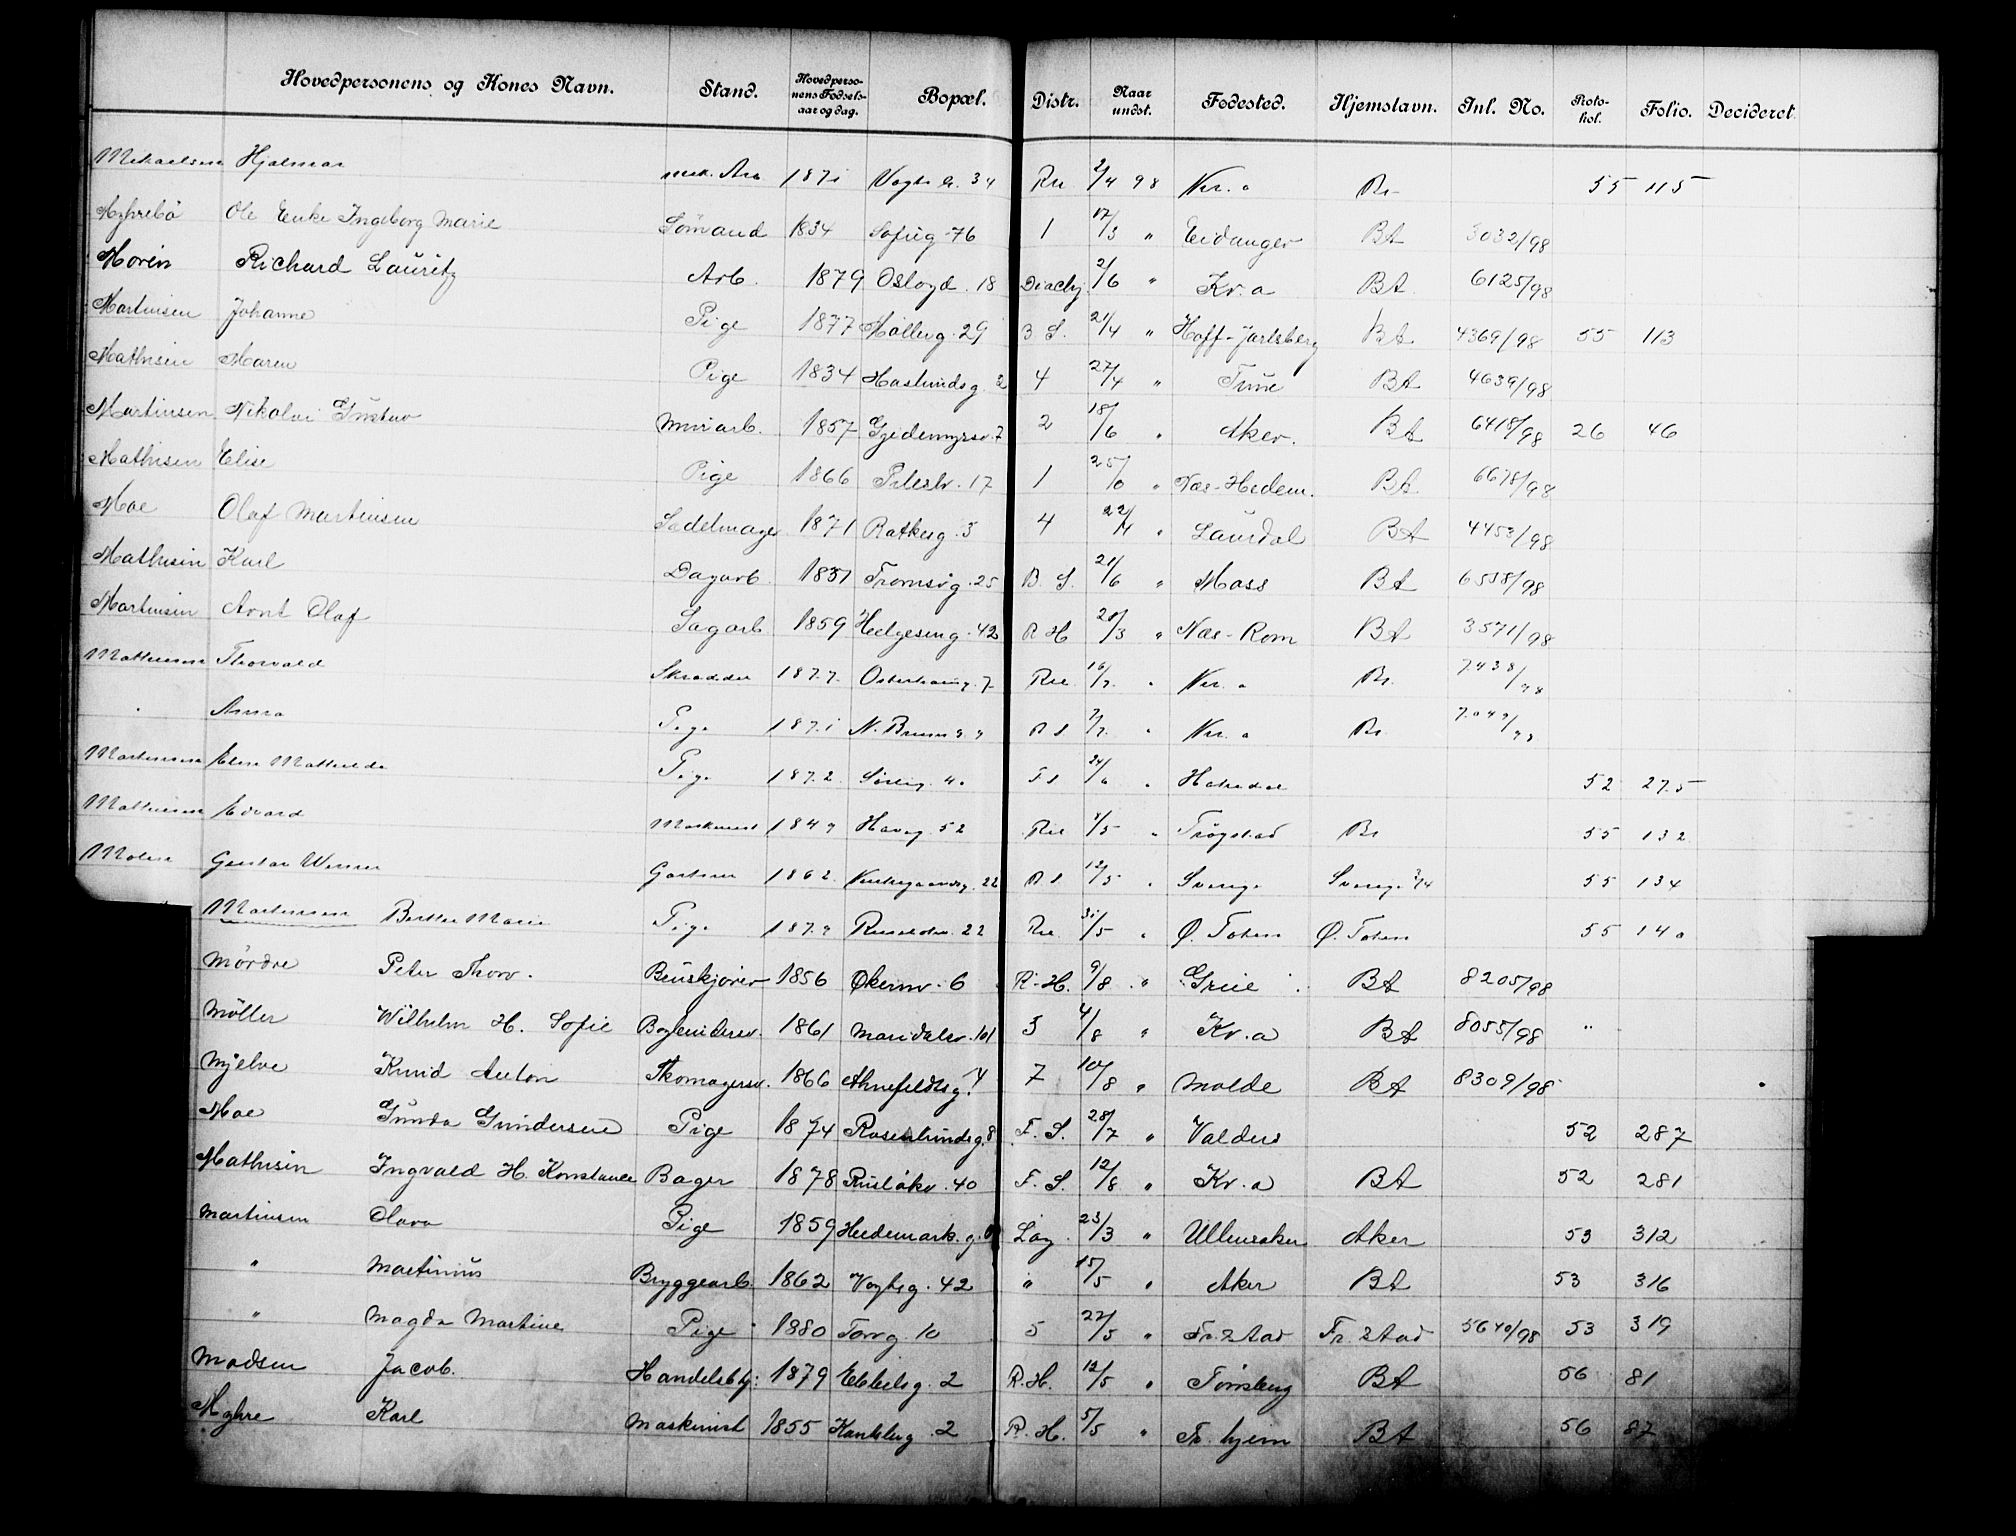 Hovedpersonens og Kones Navn. Stand. Hovedpersonens Fødselsaar og dag. Bopæl. Distr. Naar undst. Fødested. Hjemstavn. Inl. No. Protokol. Folio. Decideret.
Mikaelsen Hjalmar mek. Arb 1871 Vogts g. 34 2/4 98 Kr.a Br 55 115
Myhrebö Ole Enke Ingeborg Marie Sömand 1834 Sofieg 76 1 17/3 " Eidanger BA 3032/98
Moren Richard Lauritz Arb. 1879 Oslogd. 18 2/6 " Kr.a BA 6125/98
Martinsen Johanne Pige 1877 Mölleng. 29 B S. 21/4 " Hoff-Jarlsberg BA 4369/98 55 113
Mathisen Maren Pige 1834 Haslundsg. 2 4 27/4 " Tune BA 4639/98
Martinsen Nikolai Gustav Murarb. 1857 Gjedemyrsv. 7 2 18/6 " Aker. BA 6418/98 26 46
Mathisen Elise Pige 1866 Pilestr. 17 1 25/6 " Næs-Hedem. BA 6678/98
Moe Olaf Martinsen Sadelmager 1871 Ratkesg. 5 4 22/4 " Laurdal BA 4453/98
Mathisen Karl Dagarb. 1831 Tromsög. 25 B. S. 21/6 " Moss BA 6538/98
Martinsen Arnt Olaf Sagarb 1859 Helgeseng. 42 R H 20/3 " Næs-Rom BA 3571/98
Mathisen Thorvald Skrædder 1877 7 16/7 " Kr.a Br. 7438/98
" Anna Pige 1871 7/7 " Kr.a Br.
Martinsen Pige 1872 24/6 " Hakedal 52 275
Mathisen Edvard Maskinist 52 7/5 " Trögstad Br 55 132
Gustav Werner Gartner 1862 22 12/5 " Sverige Sverige 55 134
Martinsen Berthe Marie Pige 22 31/5 " Ø. Toten Ø. Toten 55 140
Mördre Peter Thorv. Buskjörer 1856 Økernv. 6 R. H. 9/8 " Grue BA 8205/98
Möller Wilhelm H. Sofie 1861 Maridalsv. 101 3 4/8 " Kr.a BA 8055/98 "
Mjelve Knud Anton Skomagersv. 1866 Ahnefeldtsg. 4 7 10/8 " Molde BA 8309/98
Moe Gunda Gundersen Pige 1874 Rosenlundsg. 8 F. S. 28/7 " Valders 52 287
Mathisen Ingvald H. Konstance Bager 1878 Ruslökv. 40 F. S. 12/8 " Kr.a BA 52 281
Martinsen Olava Pige 1859 Hedemark. g. Læg. 23/3 " Ullensaker Aker 53 312
" Martinus Bryggearb. 1862 Vogtsg. 42 " 15/5 " Aker BA 53 316
" Magda Martine Pige 1880 Torvg. 10 5 27/5 " Fr.stad Fr.stad 5640/98 53 319
Madsen Jacob. Handelsbtj: 1879 Ebbelsg. 2 R. H. 12/5 " Tönsberg BA 56 81
Myhre Karl Maskinist 1855 2 R. H. 5/5 " Tr.hjem BA 56 87